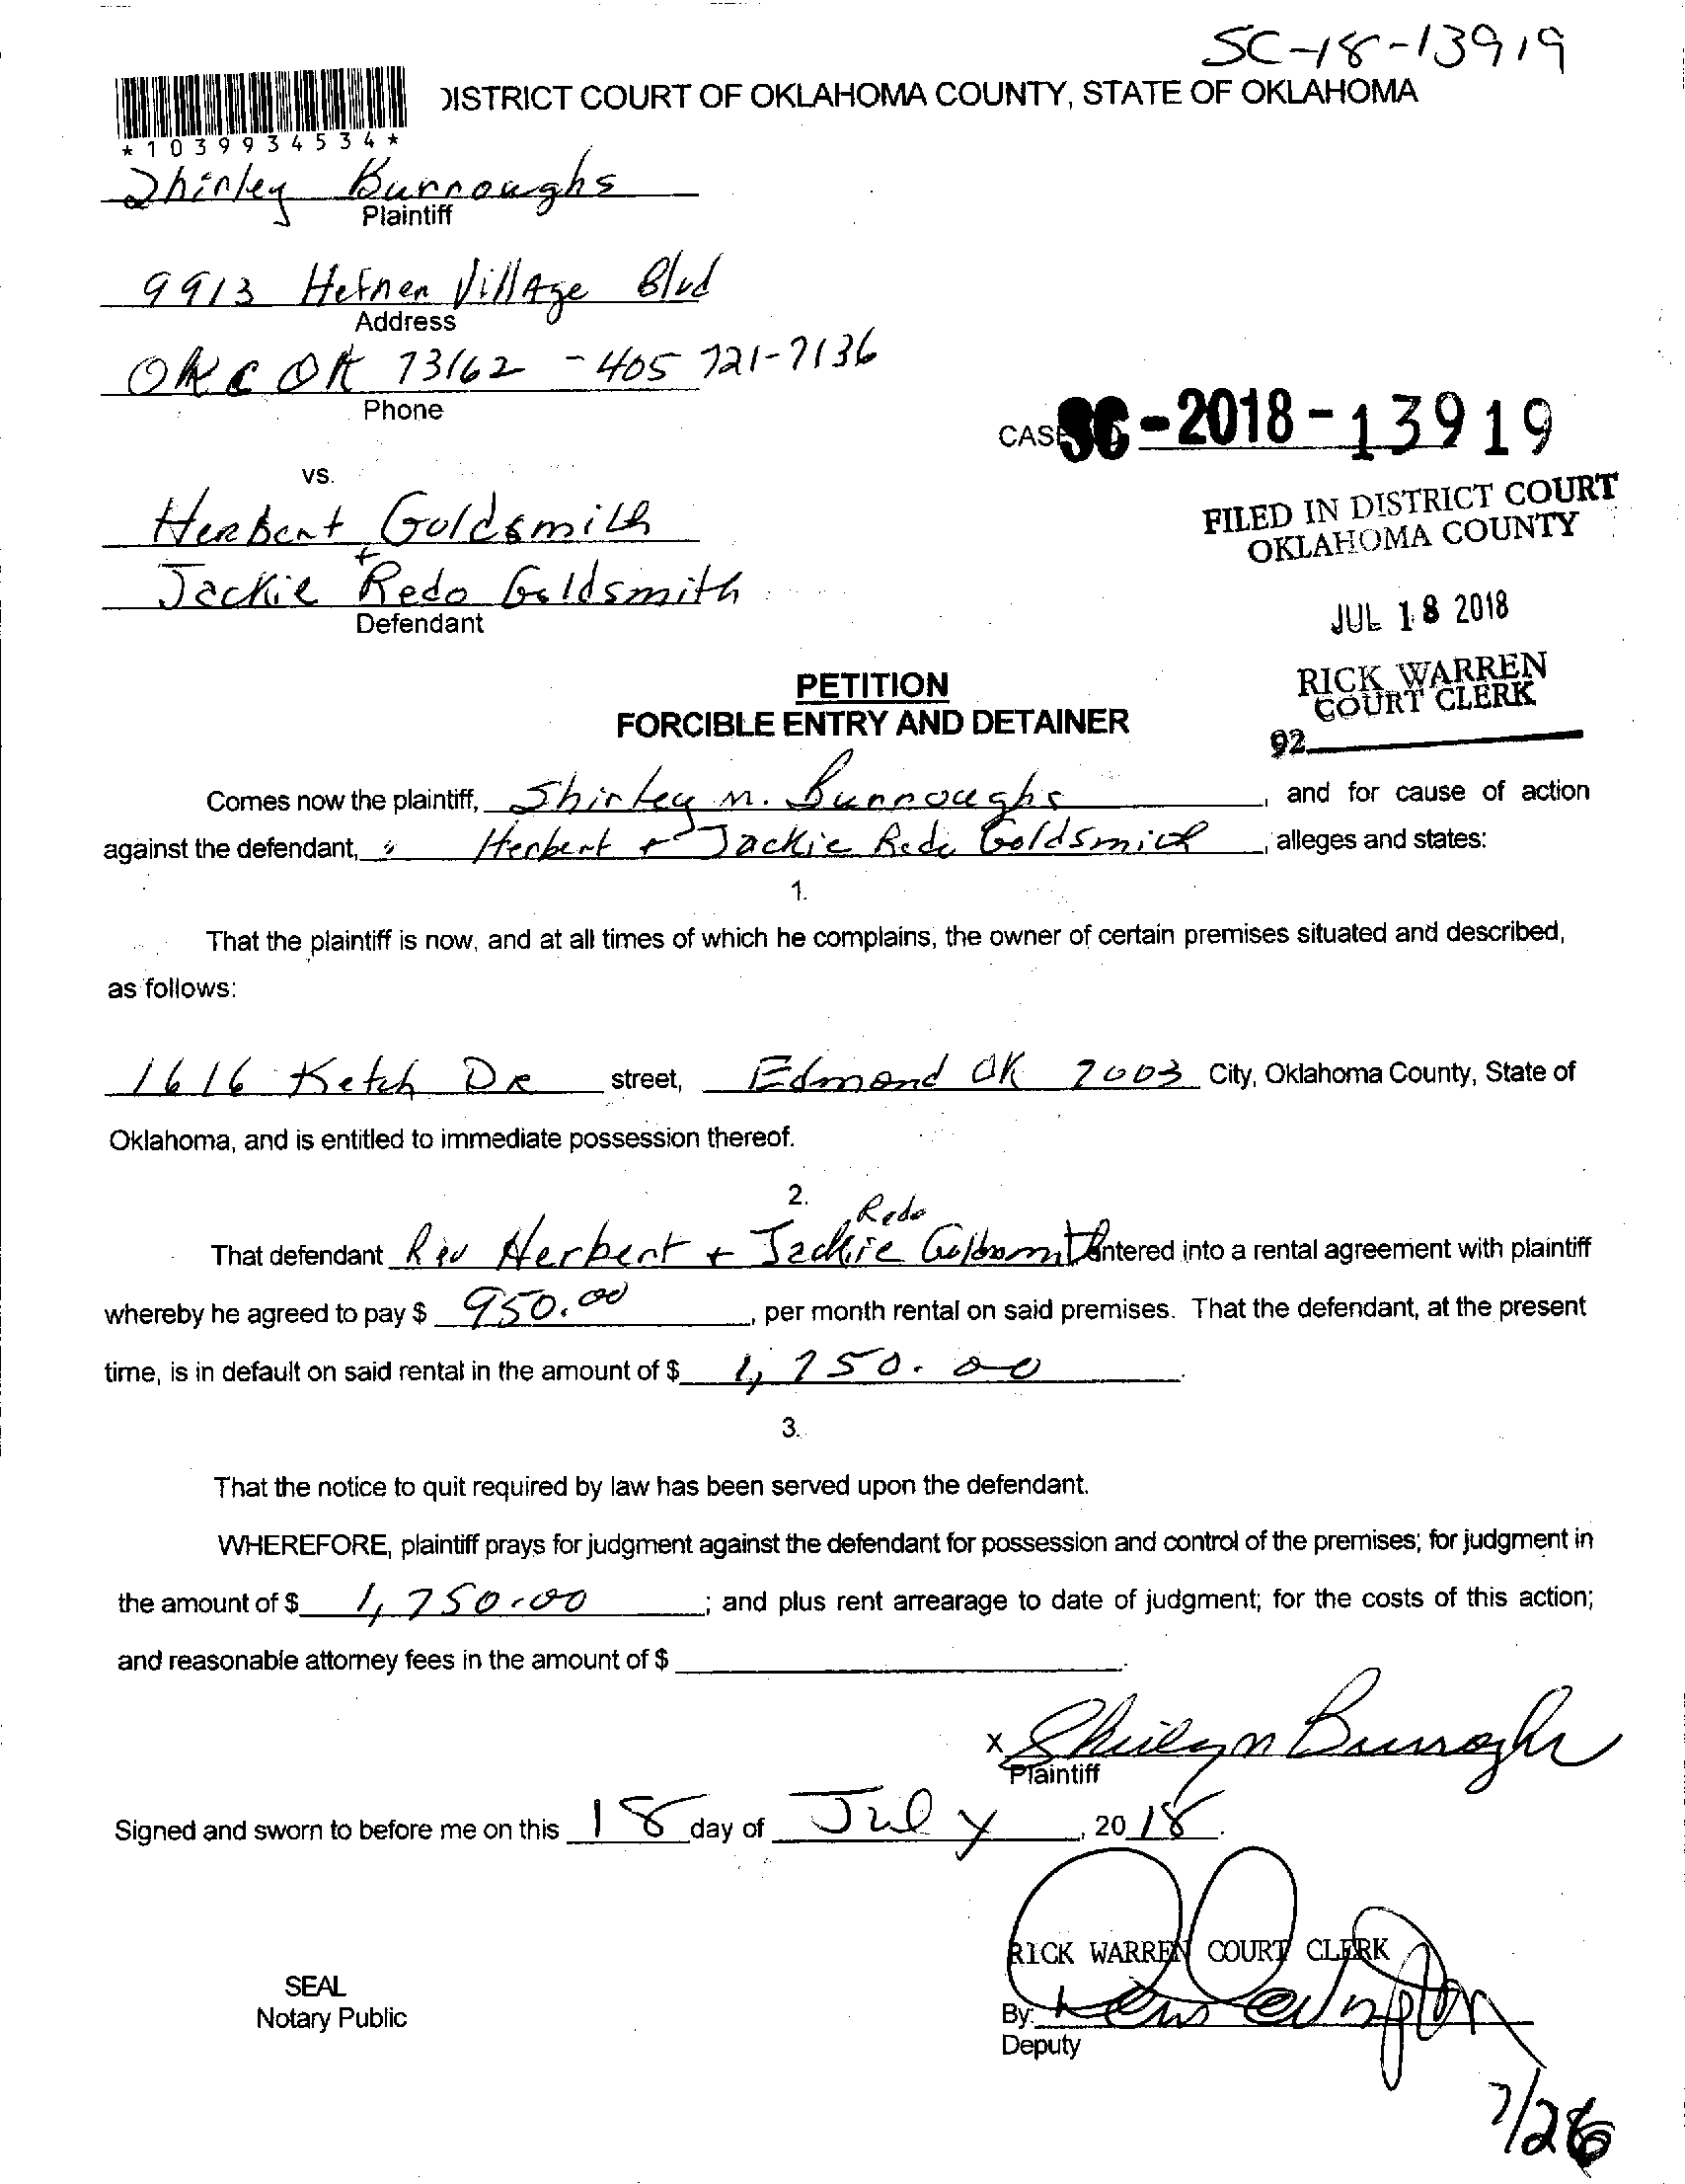 SC-18-13919
DISTRICT COURT OF OKLAHOMA COUNTY, STATE OF OKLAHOMA
*1039934534*
Shirley Burroughs
Plaintiff
9913 Hefner Village Blvd
Address
OKC OK 73162 - 405 721-7136
Phone
CASE SC-2018-13919
vs.
FILED IN DISTRICT COURT
OKLAHOMA COUNTY
Herbert Goldsmith
+
Jackie Redo Goldsmith
Defendant
JUL 18 2018
RICK WARREN
COURT CLERK
92
PETITION
FORCIBLE ENTRY AND DETAINER
Comes now the plaintiff, Shirley M. Burroughs, and for cause of action
against the defendant, Herbert + Jackie Redo Goldsmith, alleges and states:
1.
That the plaintiff is now, and at all times of which he complains, the owner of certain premises situated and described,
as follows:
1616 Ketch DR street, Edmond OK 7003 City, Oklahoma County, State of
Oklahoma, and is entitled to immediate possession thereof.
2.
Redo
That defendant Rev Herbert + Jackie Goldsmith entered into a rental agreement with plaintiff
whereby he agreed to pay $ 950.00, per month rental on said premises. That the defendant, at the present
time, is in default on said rental in the amount of $ 1,750.00.
3.
That the notice to quit required by law has been served upon the defendant.
WHEREFORE, plaintiff prays for judgment against the defendant for possession and control of the premises; for judgment in
the amount of $ 1,750.00; and plus rent arrearage to date of judgment; for the costs of this action;
and reasonable attorney fees in the amount of $
X Shirley M Burroughs
Plaintiff
Signed and sworn to before me on this 18 day of July, 2018.
RICK WARREN COURT CLERK
SEAL
Notary Public
By:
Deputy
7/26